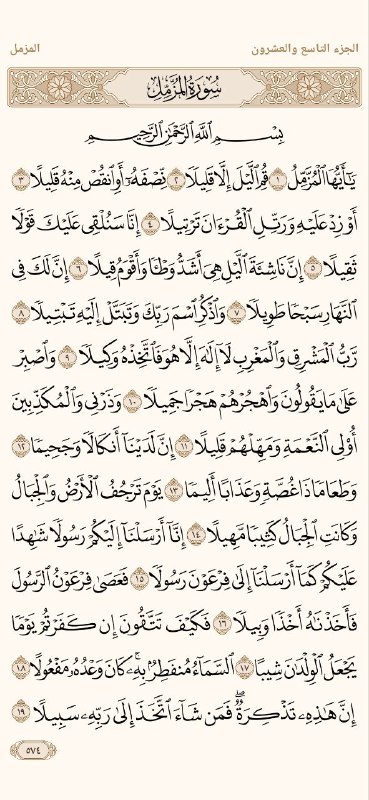 الجزء التاسع والعشرون
المزمل
سُورَةُ المُزَّمِّل
بِسْمِ ٱللَّهِ ٱلرَّحْمَٰنِ ٱلرَّحِيمِ
يَٰٓأَيُّهَا ٱلْمُزَّمِّلُ ١ قُمِ ٱلَّيْلَ إِلَّا قَلِيلًا ٢ نِّصْفَهُۥٓ أَوِ ٱنقُصْ مِنْهُ قَلِيلًا ٣
أَوْ زِدْ عَلَيْهِ وَرَتِّلِ ٱلْقُرْءَانَ تَرْتِيلًا ٤ إِنَّا سَنُلْقِى عَلَيْكَ قَوْلًا
ثَقِيلًا ٥ إِنَّ نَاشِئَةَ ٱلَّيْلِ هِىَ أَشَدُّ وَطْـًٔا وَأَقْوَمُ قِيلًا ٦ إِنَّ لَكَ فِى
ٱلنَّهَارِ سَبْحًا طَوِيلًا ٧ وَٱذْكُرِ ٱسْمَ رَبِّكَ وَتَبَتَّلْ إِلَيْهِ تَبْتِيلًا ٨
رَّبُّ ٱلْمَشْرِقِ وَٱلْمَغْرِبِ لَآ إِلَٰهَ إِلَّا هُوَ فَٱتَّخِذْهُ وَكِيلًا ٩ وَٱصْبِرْ
عَلَىٰ مَا يَقُولُونَ وَٱهْجُرْهُمْ هَجْرًا جَمِيلًا ١٠ وَذَرْنِى وَٱلْمُكَذِّبِينَ
أُو۟لِى ٱلنَّعْمَةِ وَمَهِّلْهُمْ قَلِيلًا ١١ إِنَّ لَدَيْنَآ أَنكَالًا وَجَحِيمًا ١٢
وَطَعَامًا ذَا غُصَّةٍ وَعَذَابًا أَلِيمًا ١٣ يَوْمَ تَرْجُفُ ٱلْأَرْضُ وَٱلْجِبَالُ
وَكَانَتِ ٱلْجِبَالُ كَثِيبًا مَّهِيلًا ١٤ إِنَّآ أَرْسَلْنَآ إِلَيْكُمْ رَسُولًا شَٰهِدًا
عَلَيْكُمْ كَمَآ أَرْسَلْنَآ إِلَىٰ فِرْعَوْنَ رَسُولًا ١٥ فَعَصَىٰ فِرْعَوْنُ ٱلرَّسُولَ
فَأَخَذْنَٰهُ أَخْذًا وَبِيلًا ١٦ فَكَيْفَ تَتَّقُونَ إِن كَفَرْتُمْ يَوْمًا
يَجْعَلُ ٱلْوِلْدَٰنَ شِيبًا ١٧ ٱلسَّمَآءُ مُنفَطِرٌۢ بِهِۦ ۚ كَانَ وَعْدُهُۥ مَفْعُولًا ١٨
إِنَّ هَٰذِهِۦ تَذْكِرَةٌ ۖ فَمَن شَآءَ ٱتَّخَذَ إِلَىٰ رَبِّهِۦ سَبِيلًا ١٩
٥٧٤